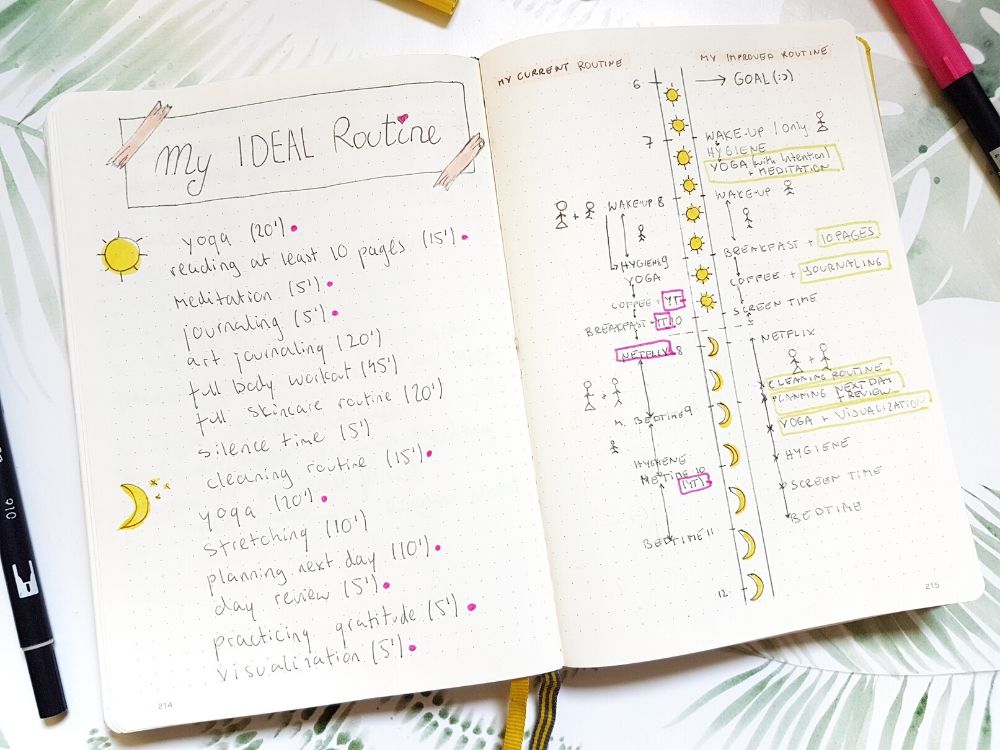 My IDEAL Routine
yoga (20')
reading at least 10 pages (15')
meditation (5')
journaling (5')
art journaling (20')
full body workout (45')
full skincare routine (20')
silence time (5')
cleaning routine (15')
yoga (20')
stretching (10')
planning next day (10')
day review (5')
practicing gratitude (5')
visualization (5')
214
MY CURRENT ROUTINE
6
7
WAKE-UP 8
HYGIENE 9
YOGA
COFFEE + YT
BREAKFAST + YT 10
NETFLIX 8
M. BEDTIME 9
HYGIENE
ME TIME 10
(YT)
BEDTIME 11
12
MY IMPROVED ROUTINE
→ GOAL (:>)
WAKE-UP / only
HYGIENE
YOGA (with intention)
+ MEDITATION
WAKE-UP
BREAKFAST + 10 PAGES
COFFEE + JOURNALING
SCREEN TIME
NETFLIX
CLEANING ROUTINE
PLANNING NEXT DAY
+ REVIEW
YOGA + VISUALIZATION
HYGIENE
SCREEN TIME
BEDTIME
215
010